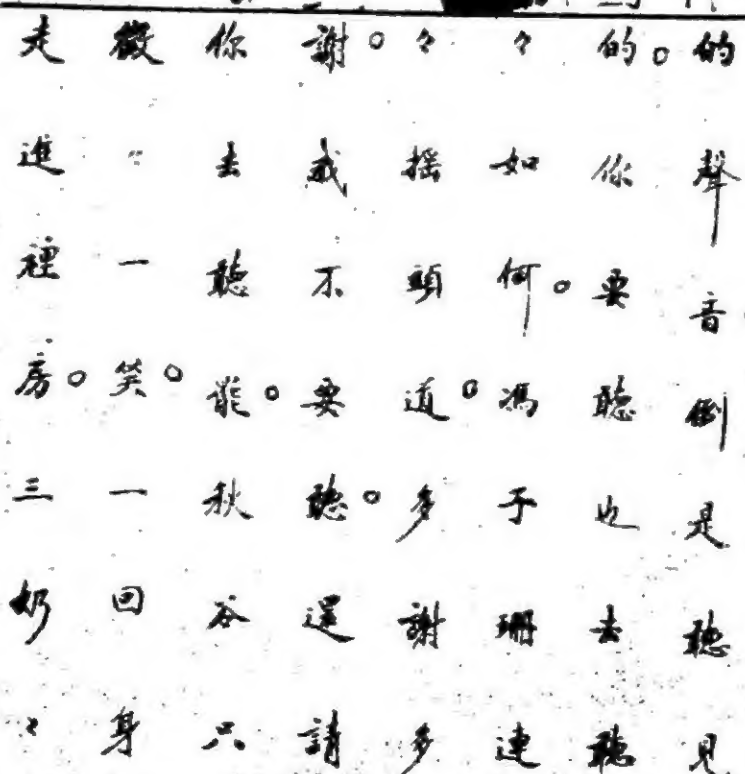 的聲音倒是聽見
的。你要聽也去聽
々如何。馮子珊連
々搖頭道。多謝多
謝。我不要聽。還請
你去聽罷。秋谷只
微〻一笑。一回身
走進裡房。三奶〻